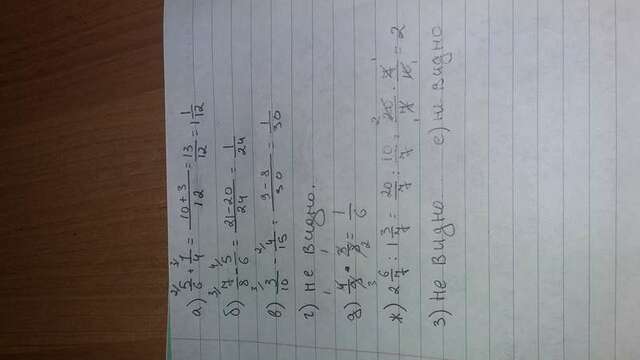 а) 2/ 5/6 + 3/ 1/4 = (10+3)/12 = 13/12 = 1 1/12
б) 3/ 7/8 - 4/ 5/6 = (21-20)/24 = 1/24
в) 3/ 3/10 - 2/ 4/15 = (9-8)/30 = 1/30
г) не видно.
д) 4/9 · 3/8 = 1/6
ж) 2 6/7 : 1 3/7 = 20/7 : 10/7 = 20/7 · 7/10 = 2
з) не видно е) не видно